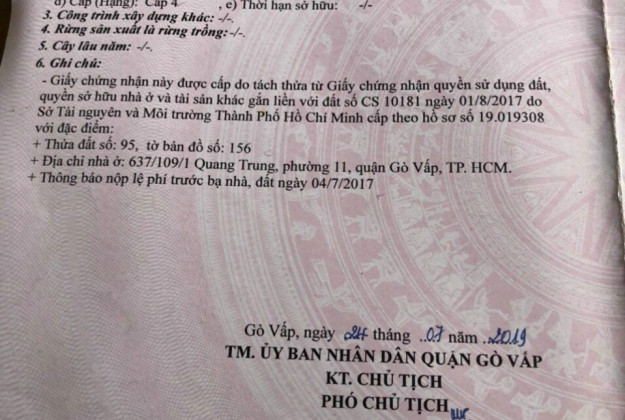 d) Cấp (Hạng): Cấp 4 , e) Thời hạn sở hữu: -/-
3. Công trình xây dựng khác: -/-.
4. Rừng sản xuất là rừng trồng: -/-.
5. Cây lâu năm: -/-.
6. Ghi chú:
- Giấy chứng nhận này được cấp do tách thửa từ Giấy chứng nhận quyền sử dụng đất,
quyền sở hữu nhà ở và tài sản khác gắn liền với đất số CS 10181 ngày 01/8/2017 do
Sở Tài nguyên và Môi trường Thành Phố Hồ Chí Minh cấp theo hồ sơ số 19.019308
với đặc điểm:
+ Thửa đất số: 95, tờ bản đồ số: 156
+ Địa chỉ nhà ở: 637/109/1 Quang Trung, phường 11, quận Gò Vấp, TP. HCM.
+ Thông báo nộp lệ phí trước bạ nhà, đất ngày 04/7/2017
Gò Vấp, ngày 24 tháng ..07 năm ..2019
TM. ỦY BAN NHÂN DÂN QUẬN GÒ VẤP
KT. CHỦ TỊCH
PHÓ CHỦ TỊCH